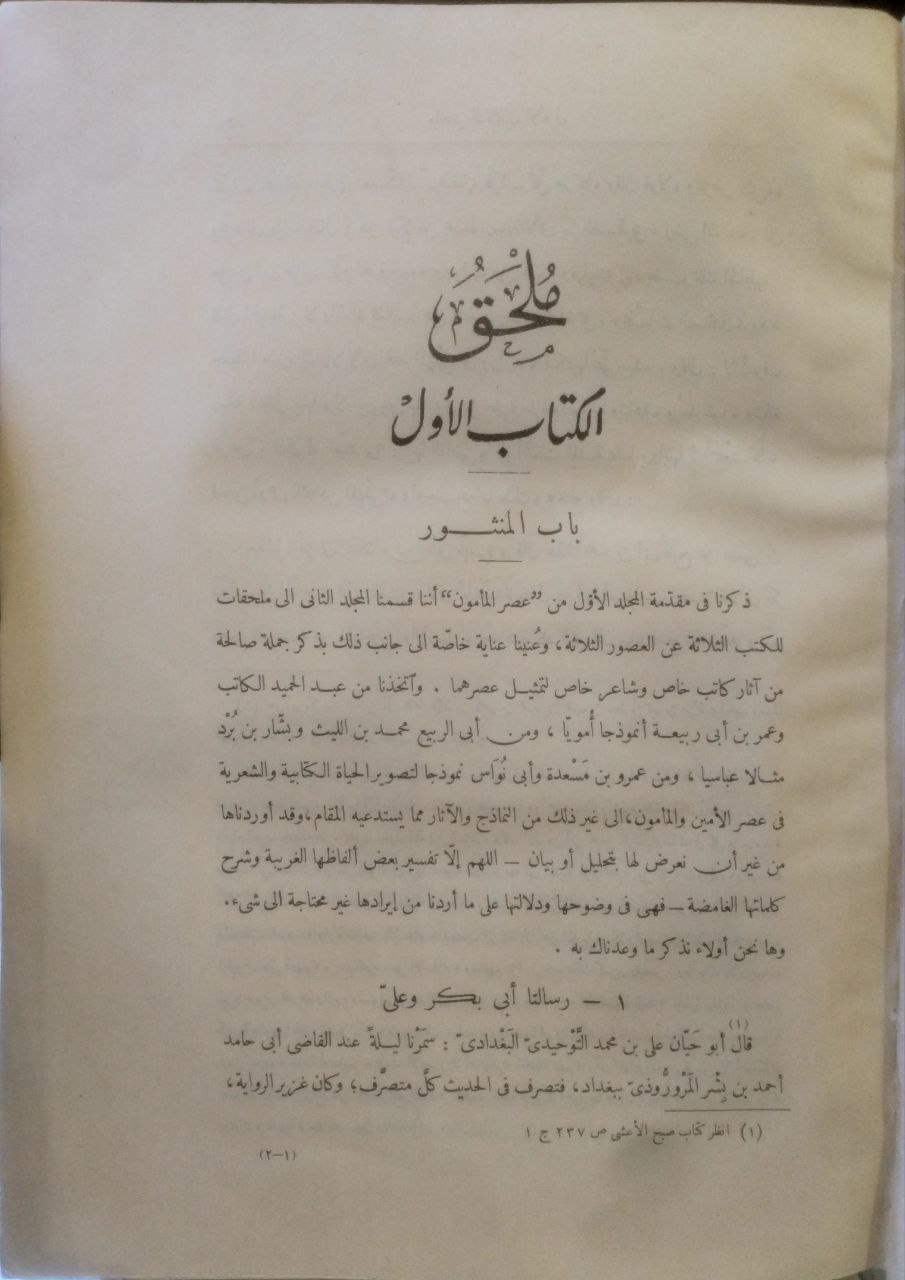 مُلْحَقُ
الكتاب الأول
باب المنثــور
ذكرنا فى مقدّمة المجلد الأوّل من ”عصر المأمون“ أننا قسمنا المجلد الثانى الى ملحقات
للكتب الثلاثة عن العصور الثلاثة، وعُنينا عناية خاصّة الى جانب ذلك بذكر جملة صالحة
من آثار كاتب خاص وشاعر خاص لتمثيـل عصرهما . وآتخذنا من عبـد الحميد الكاتب
وعمر بن أبى ربيعـة أنموذجا أُمويًّا ، ومن أبى الربيع محمـد بن الليث وبشّار بن بُرْد
مثـالا عباسيا ، ومن عمرو بن مَسْعدة وأبى نُوَاس نموذجا لتصوير الحياة الكتابية والشعرية
فى عصر الأمين والمأمون، الى غير ذلك من النماذج والآثار مما يستدعيه المقام، وقد أوردناها
من غير أن نعرض لها بتحليل أو بيان – اللهم إلّا تفسير بعض ألفاظها الغريبة وشرح
كلماتها الغامضة – فهى فى وضوحها ودلالتها على ما أردنا من إيرادها غير محتاجة الى شىء.
وها نحن أولاء نذكر ما وعدناك به .
١ – رسالتا أبى بكر وعلىّ
قال(١) أبو حَيّان على بن محمد التَّوْحيدىّ البَغْدادىّ : سمَرْنا ليـلةً عند القاضى أبى حامد
أحمد بن بِشْر المَرْوَرُّوذىّ ببغداد، فتصرف فى الحديث كلَّ متصرَّف؛ وكان غزير الرواية،
(١) انظر كتاب صبح الأعشى ص ٢٣٧ ج ١
(١–٢)